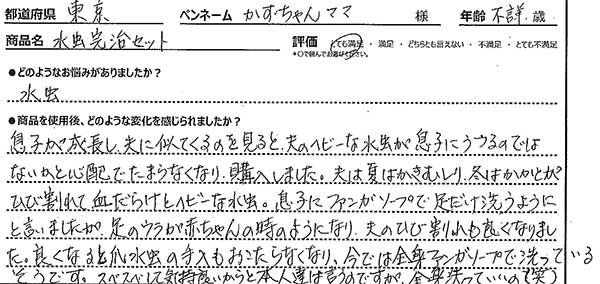 都道府県 東京 ペンネーム かずちゃんママ 様 年齢 不詳 歳
商品名 水虫完治セット 評価 とても満足・満足・どちらとも言えない・不満足・とても不満足
*○で囲んでお選びください。
●どのようなお悩みがありましたか?
水虫
●商品を使用後、どのような変化を感じられましたか?
息子が成長し、夫に似てくるのを見ると、夫のヘビーな水虫が息子にうつるのでは
ないかと心配でたまらなくなり、購入しました。夫は夏はかきむしり、冬はかかとが
ひび割れて血だらけとヘビーな水虫。息子にファンガソープで足だけ洗うように
と言いましたが、足のウラが赤ちゃんの時のようになり、夫のひび割れも良くなりまし
た。良くなると爪水虫の手入もおこたらなくなり、今では全身ファンガソープで洗っている
そうです。スベスベして気持良いからと本人達は言うのですが、全身洗っていいの?(笑)